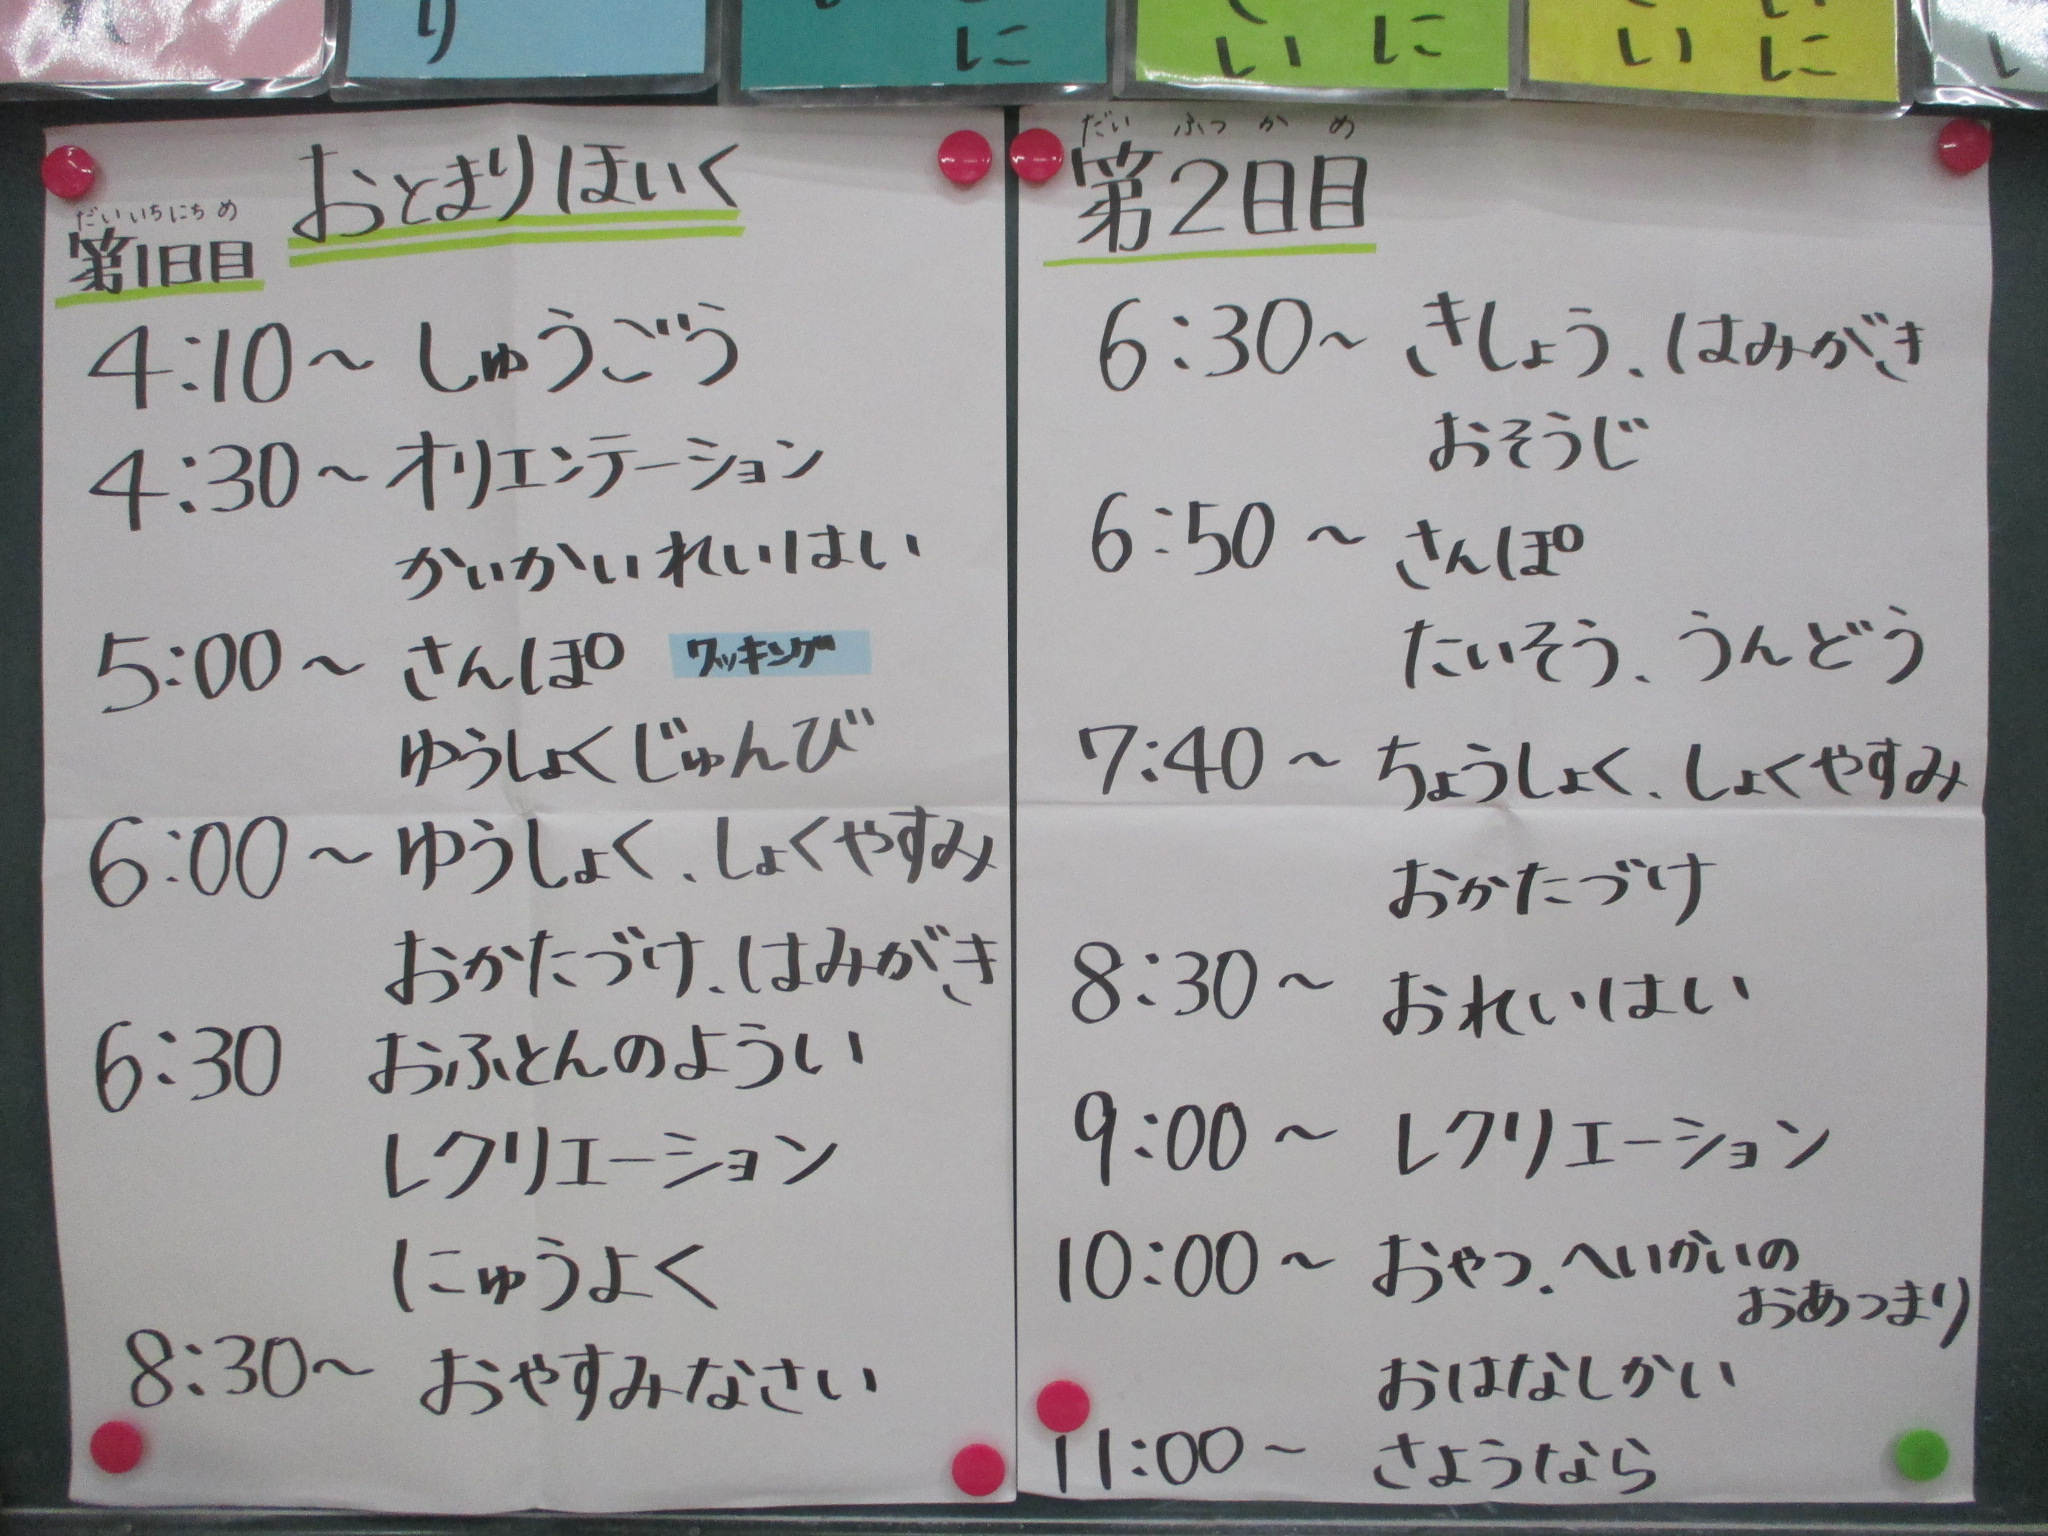 り
に
い
に
い
に
おとまりほいく
だい いち にち め
第1日目
4:10～しゅうごう
4:30～オリエンテーション
かいかいれいはい
5:00～さんぽ クッキング
ゆうしょくじゅんび
6:00～ゆうしょく、しょくやすみ
おかたづけ、はみがき
6:30 おふとんのようい
レクリエーション
にゅうよく
8:30～おやすみなさい
だい ふつ か め
第2日目
6:30～きしょう、はみがき
おそうじ
6:50～さんぽ
たいそう、うんどう
7:40～ちょうしょく、しょくやすみ
おかたづけ
8:30～おれいはい
9:00～レクリエーション
10:00～おやつ、へいかいの
おあつまり
おはなしかい
11:00～さようなら